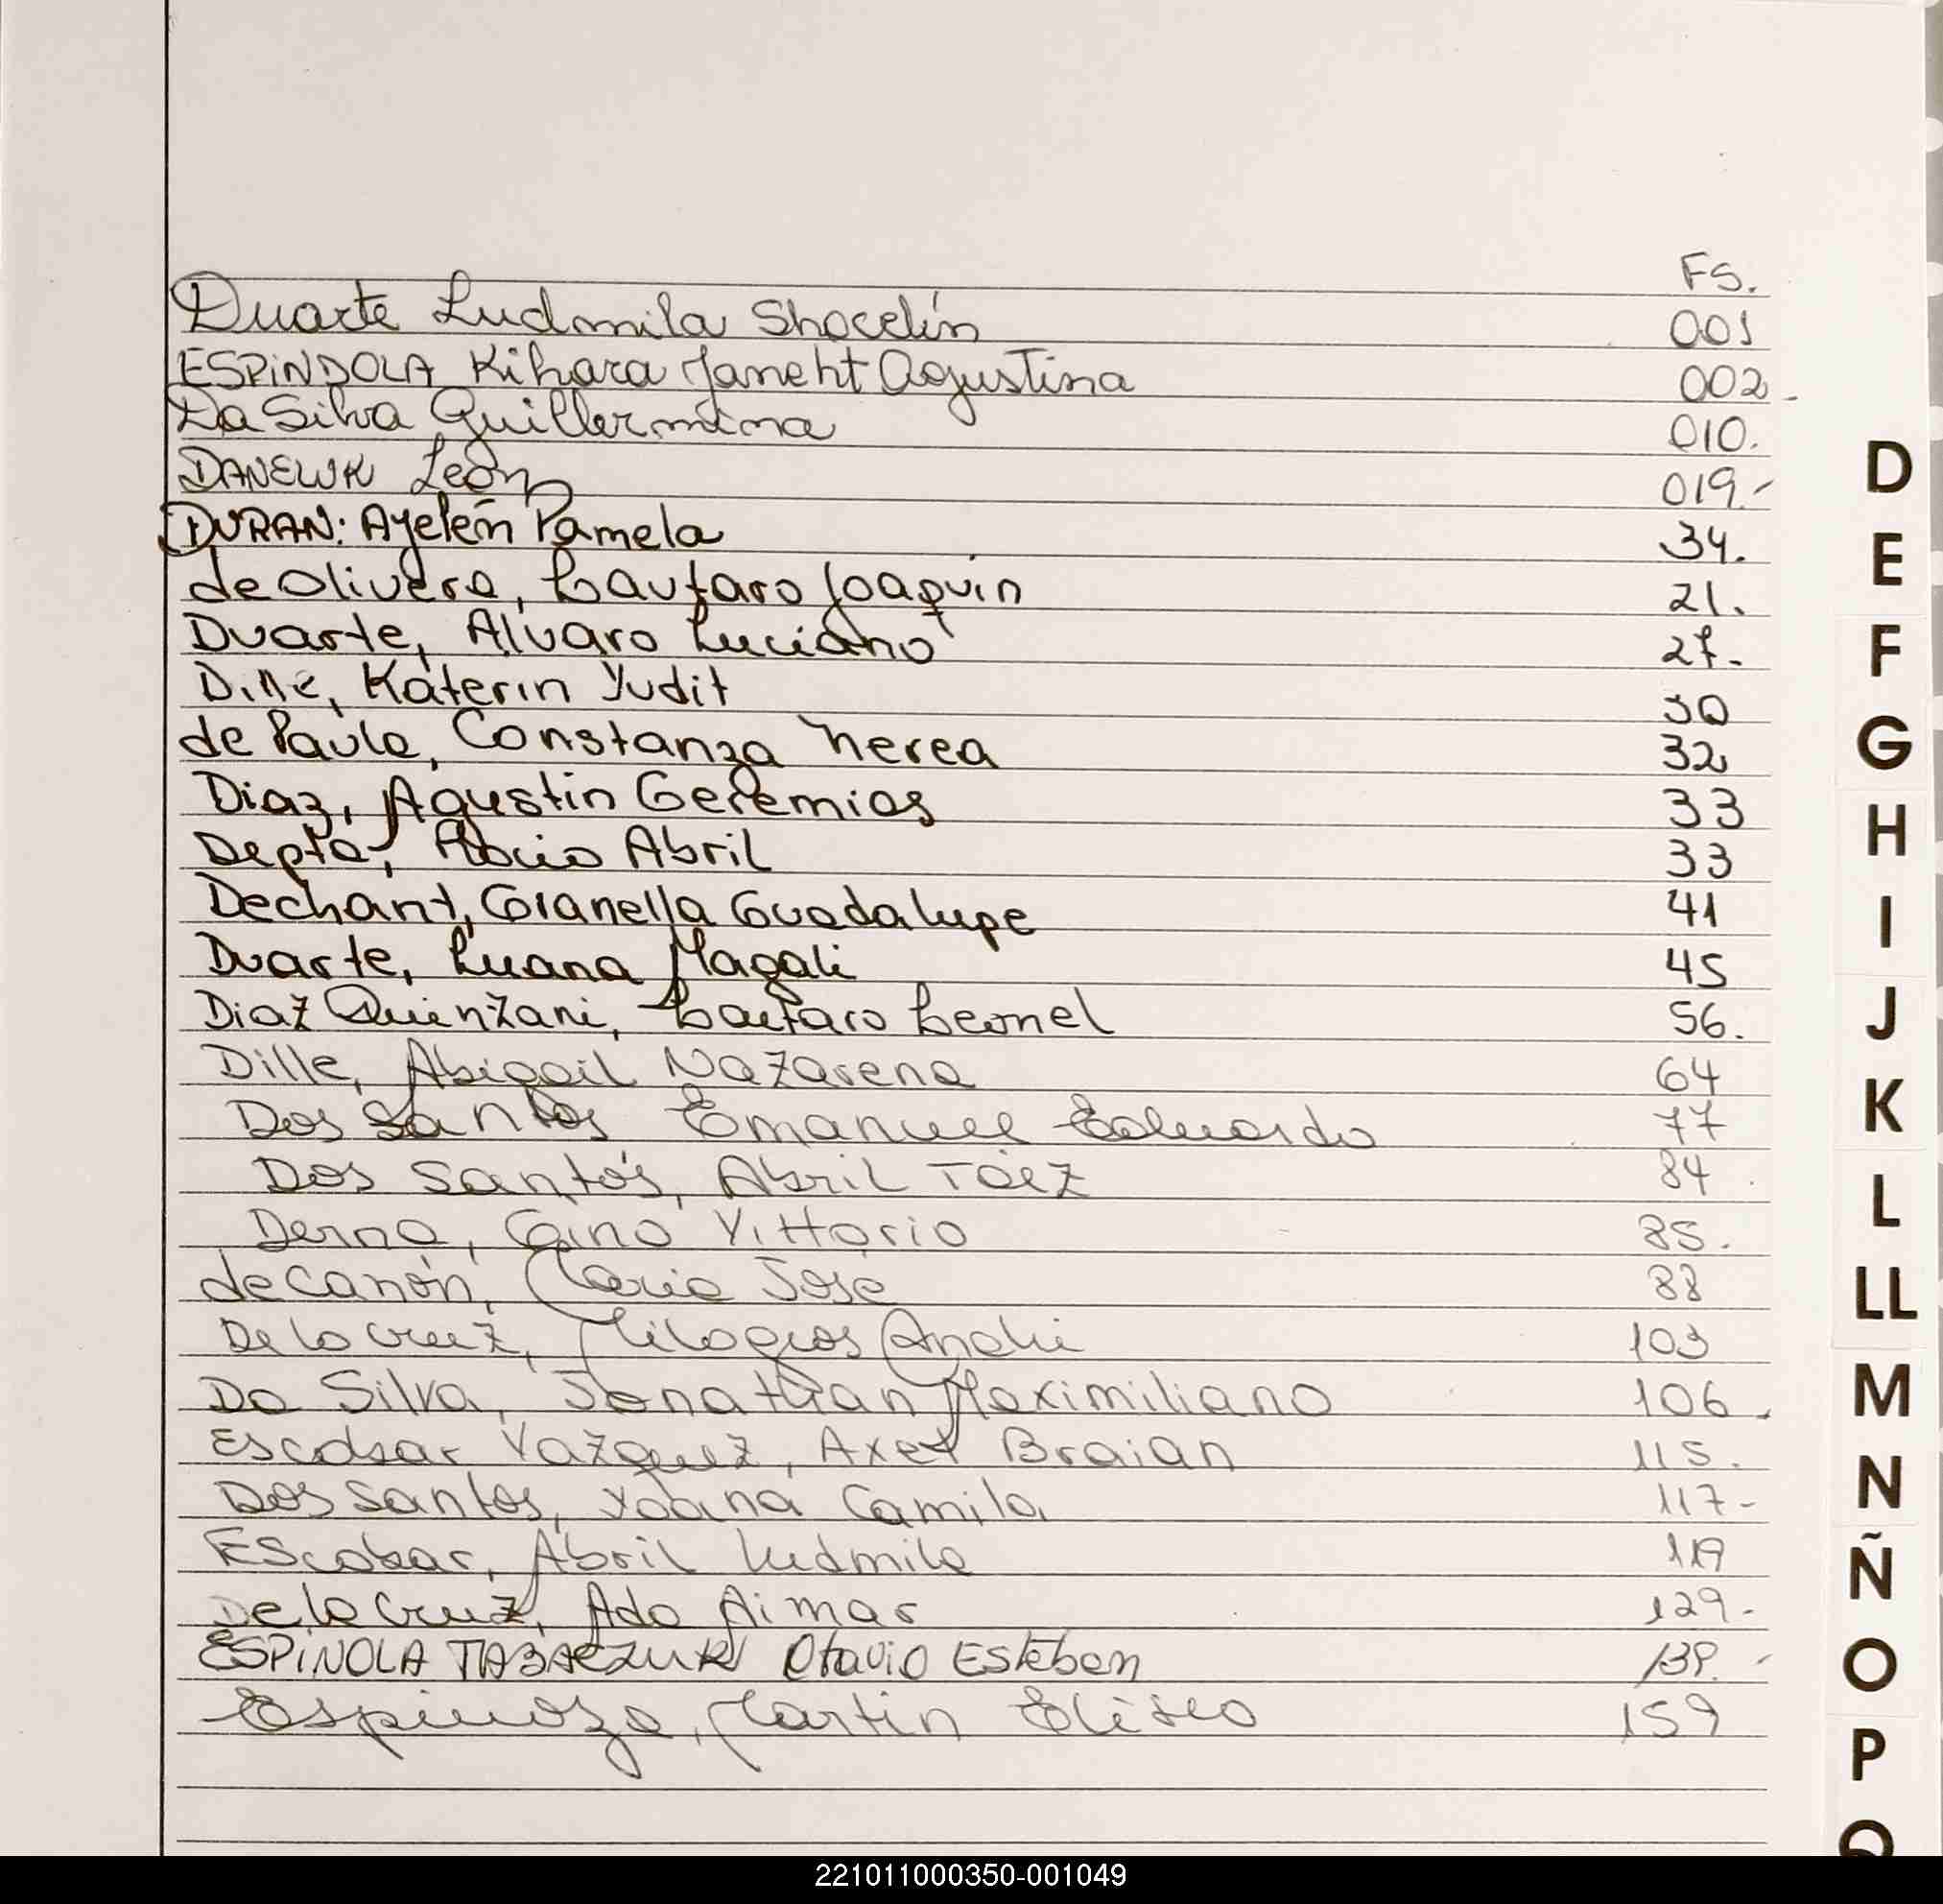 FS.
Duarte Ludmila Shocelín 001
ESPINDOLA Kihara Janeht Agustina 002.
Da Silva Guillermina 010.
DANELUK León 019.-
DURAN: Ayelén Pamela 34.
de Olivera, Lautaro Joaquín 21.
Duarte, Alvaro Luciano 27.
Dillé, Katerin Yudit 30
de Paula, Constanza Nerea 32
Diaz, Agustin Geremias 33
Depta, Rocio Abril 33
Dechant, Gianella Guadalupe 41
Duarte, Luana Magali 45
Diaz Quinzani, Lautaro Leonel 56.
Dille, Abigail Nazarena 64
Dos Santos Emanuel Eduardo 77
Dos Santos, Abril 84
Derna, Gino Vittorio 85.
de Canón, Maria José 88
De la Cruz, Milagros 103
Da Silva, Jonathan Maximiliano 106.
Escobar Vazquez, Axel Braian 115.
Dos Santos, Yoana Camila 117-
Escobar, Abril Ludmila 119
De la Cruz, Ada Aimar 129-
ESPINOLA Otavio Esteban
Espinoza, Martin Eliseo 159
D
E
F
G
H
I
J
K
L
LL
M
N
Ñ
O
P
Q
221011000350-001049